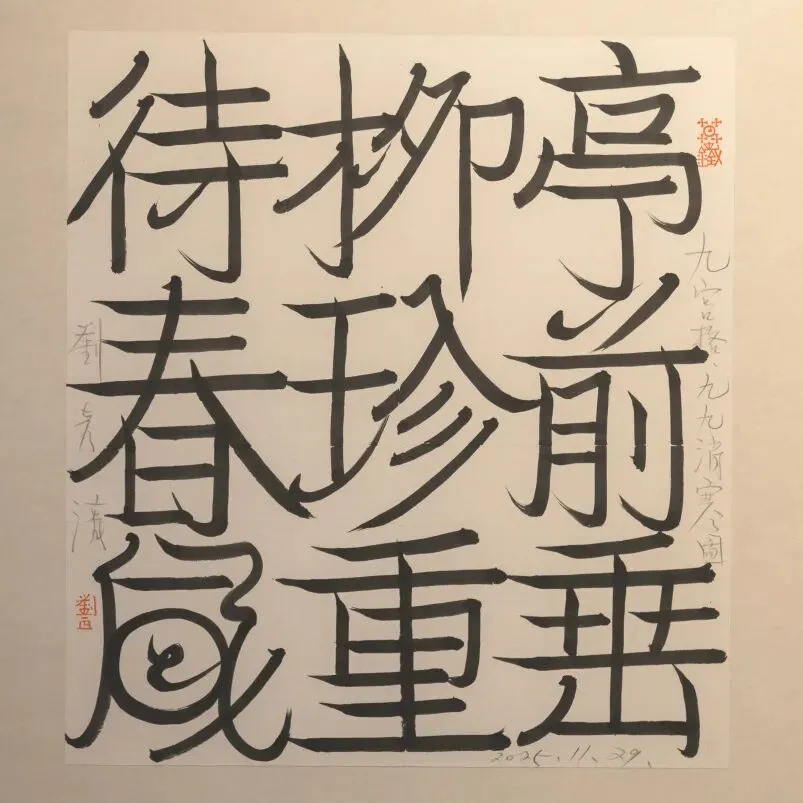 九宫格、九九消寒圖
亭前垂
柳珍重
待春風
劉彦湖
2025.11.29.